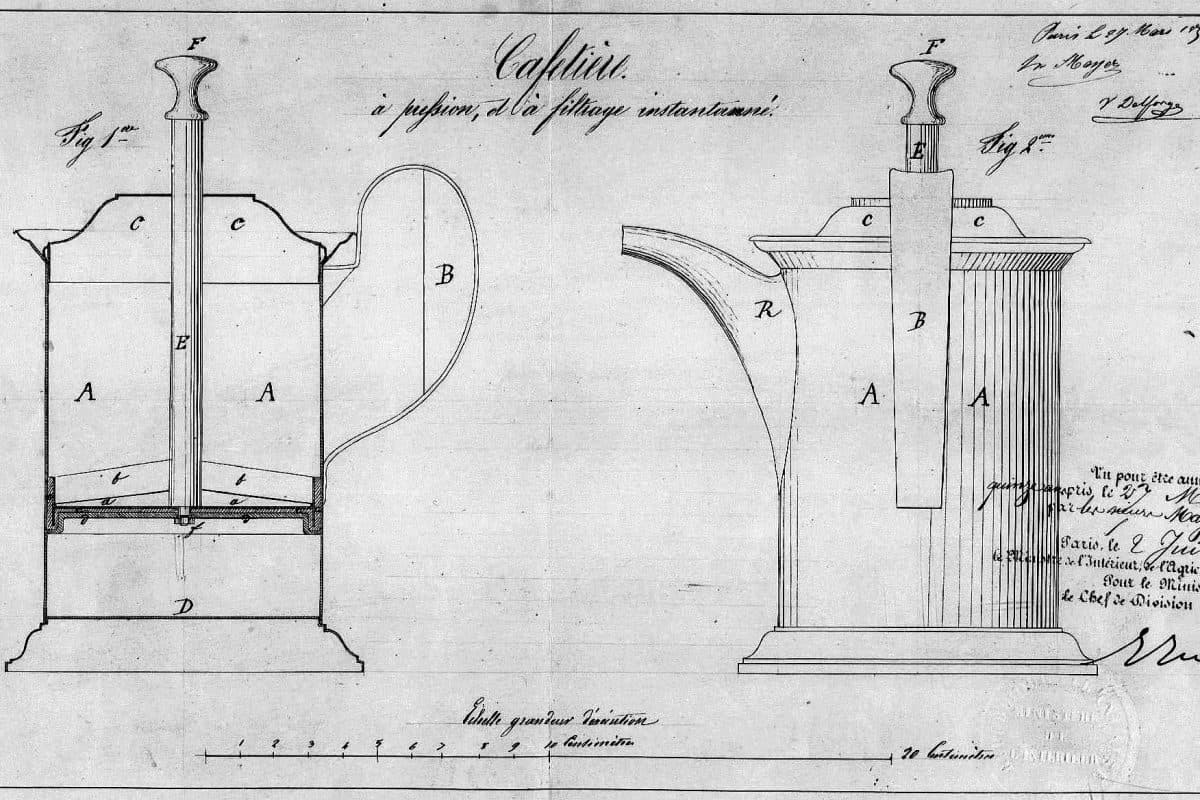 Cafetière.
à pression, et à filtrage instantanné.
Paris le 27 Mars
Mayer
Delforge
Fig 1ère
F
C C
B
E
A A
b b
a a
f
D
Fig 2ème
F
E
C C
R
B
A A
Vu pour être
quinze ans pris, le 27 M
par les sieurs
Paris, le 2 Juin
le Ministre de l'Intérieur, de l'Agric
Pour le Minis
Le Chef de Division
Echelle grandeur d'exécution
1 2 3 4 5 6 7 8 9 10 Centimètres
20 Centimètres